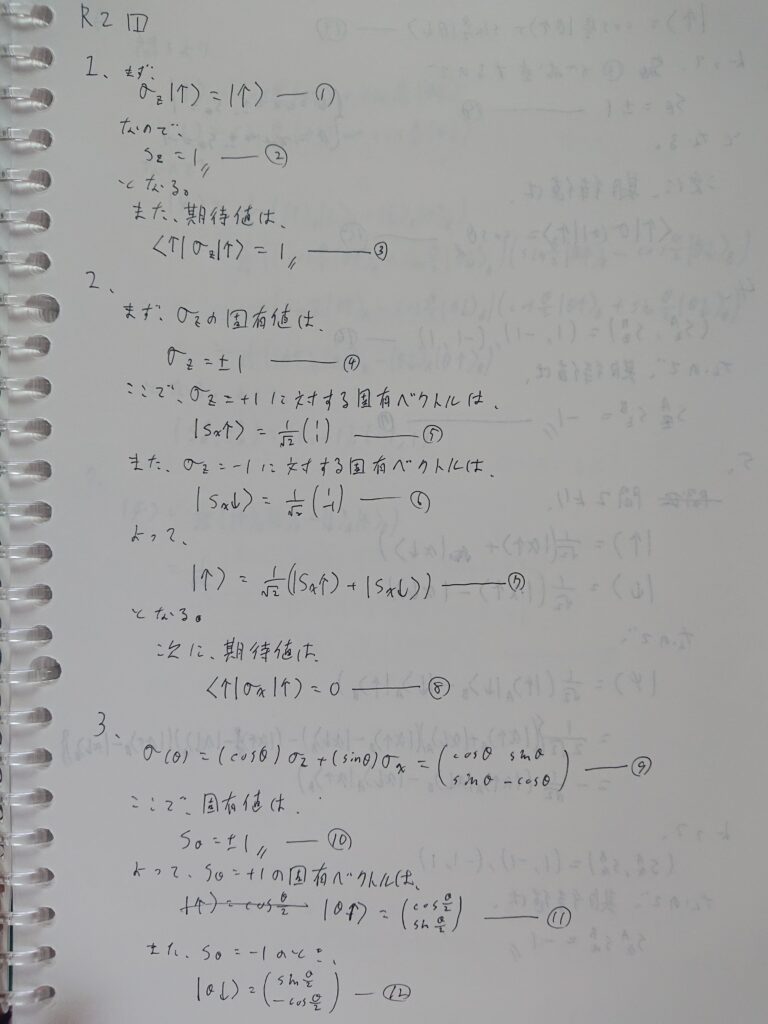 R2 II
1、まず、
σz|↑〉=|↑〉 — ①
なので、
sz = 1〃 — ②
となる。
また、期待値は、
〈↑|σz|↑〉= 1〃 — ③
2、
まず、σzの固有値は、
σz = ±1 — ④
ここで、σz=+1に対する固有ベクトルは、
|Sx↑〉= 1/√2 (1 1) — ⑤
また、σz=-1に対する固有ベクトルは、
|Sx↓〉= 1/√2 (1 -1) — ⑥
よって、
|↑〉= 1/√2 (|Sx↑〉+|Sx↓〉) — ⑦
となる。
次に、期待値は、
〈↑|σx|↑〉= 0 — ⑧
3、
σ(θ) = (cosθ)σz+(sinθ)σx = (cosθ sinθ sinθ -cosθ) — ⑨
ここで、固有値は、
sθ = ±1〃 — ⑩
よって、sθ=+1の固有ベクトルは、
|↑〉= cos θ/2 |θ↑〉= (cos θ/2 sin θ/2) — ⑪
また、sθ=-1のとき、
|θ↓〉= (sin θ/2 -cos θ/2) — ⑫